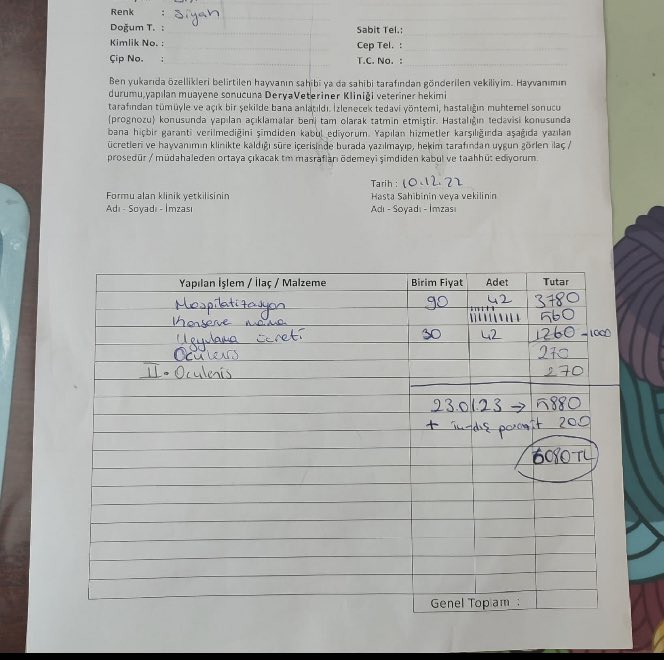 Renk : Siyah
Doğum T. :
Sabit Tel.:
Kimlik No. :
Cep Tel. :
Çip No. :
T.C. No. :
Ben yukarıda özellikleri belirtilen hayvanın sahibi ya da sahibi tarafından gönderilen vekiliyim. Hayvanımın
durumu,yapılan muayene sonucuna DeryaVeteriner Kliniği veteriner hekimi
tarafından tümüyle ve açık bir şekilde bana anlatıldı. İzlenecek tedavi yöntemi, hastalığın muhtemel sonucu
(prognozu) konusunda yapılan açıklamalar beni tam olarak tatmin etmiştir. Hastalığın tedavisi konusunda
bana hiçbir garanti verilmediğini şimdiden kabul ediyorum. Yapılan hizmetler karşılığında aşağıda yazılan
ücretleri ve hayvanımın klinikte kaldığı süre içerisinde burada yazılmayıp, hekim tarafından uygun görlen ilaç /
prosedür / müdahaleden ortaya çıkacak tm masrafları ödemeyi şimdiden kabul ve taahhüt ediyorum.
Tarih : 10.12.22
Formu alan klinik yetkilisinin
Hasta Sahibinin veya vekilinin
Adı - Soyadı - İmzası
Adı - Soyadı - İmzası
Yapılan İşlem / İlaç / Malzeme Birim Fiyat Adet Tutar
Hospilatizasyon 90 42 3780
Konserve mama 560
Uygulama ücreti 30 42 1260 -1000
Oculenis 270
II. Oculenis 270
23.01.23 → 5880
+ iç-dış parazit 200
6080 TL
Genel Toplam :